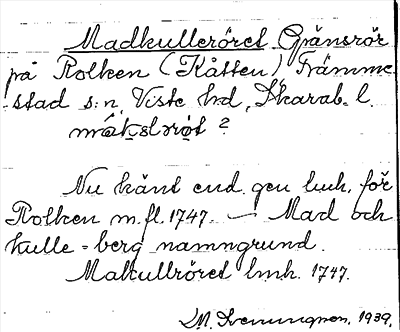 Madkulleröret Gränsrör
på Rolken (Kåtten), Främme-
stad s:n, Viste hd, Skarab. l.
?
Nu känt end. gen. lmh. för
Rolken m.fl. 1747. — Mad och
kulle = berg namngrund.
Makullröret lmh. 1747.
1939.